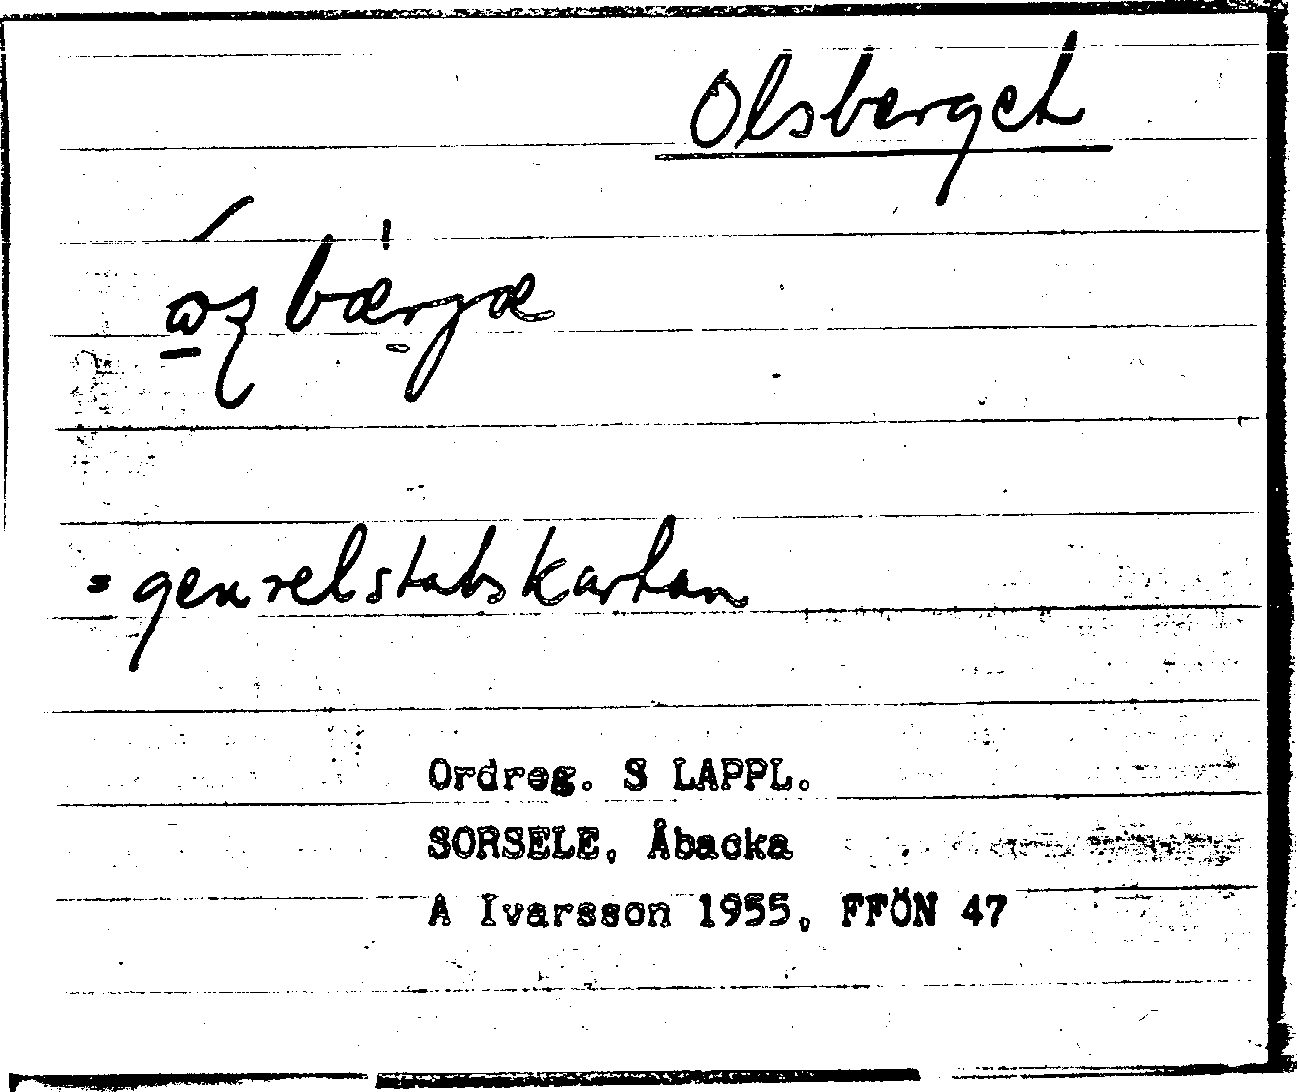 Olsberget
= genrelstabskartan
Ordreg. S LAPPL.
SORSELE, Åbacka
A Ivarsson 1955, FFÖN 47